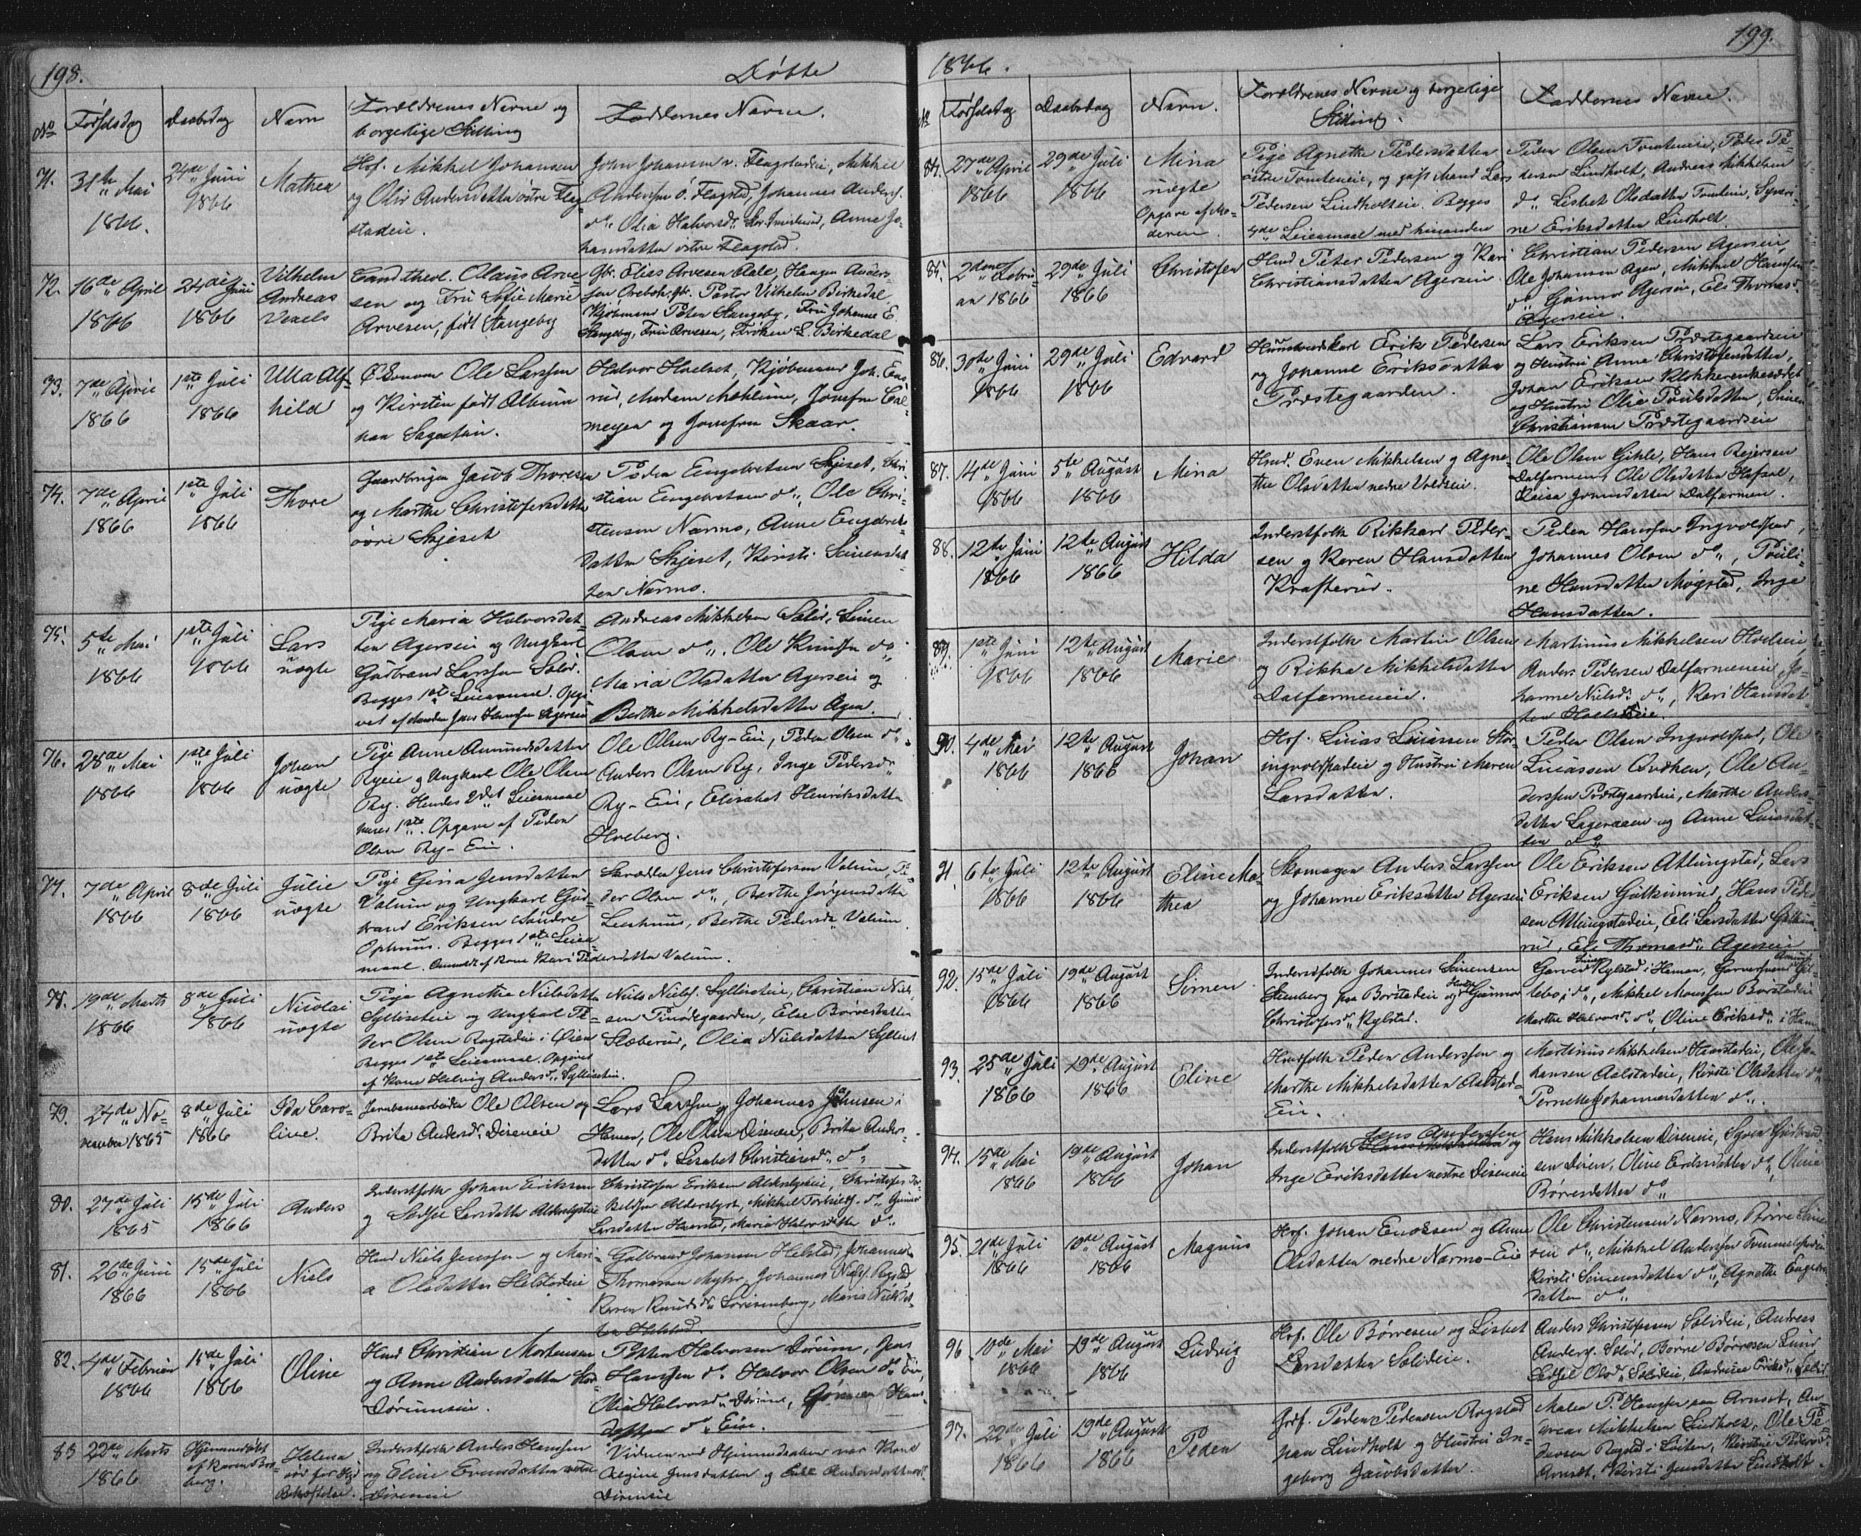 198.
Døbte
No
Fødselsdag
Daabsdag
Navn
Forældrenes Navne og
borgelige Stilling
Faddernes Navne.
71.
31te Mai
1866.
24de Juni
1866
Mathea
Hof. Mikkel Johansen
og Olia Andersdatter østre Flag-
stadeie.
John Johansen v. Flagstadeie, Mikkel
Andersen ø. Flagstad, Johannes Anders.
do, Olia Halvorsd.
Anne Jo-
hansdatter østre Flagstad.
72.
16de April
1866
24de Juni
1866
Vilhelm
Andreas
Vexels
Cand. theol. Olaus Arve-
sen og Fru Sofie Marie
Arvesen, født Hangeby
Elias Arvesen Aale, Haagen Anders
Pastor Vilhelm Birkedal
Kjøbmand Peter Hangeby, Fru Johanne E
Hangeby, Fru Arvesen, Frøken L. Birkedal
73.
7de April
1866
1ste Juli
1866
Ulla Alf-
hild
Ole Larssen
og Kirsten født Album
paa Sagatun.
Halvor Hoelset, Kjøbmand Joh.
rud, Madam Mæhlum, Jomfru Cal-
meyer og Jomfru Skaar.
74.
7de April
1866
1ste Juli
1866
Thore
Gaardbruger Jacob Thoresen
og Marthe Christofersdatter
øvre Skjeset
Peder Engebretsen Skjeset, Chri-
stian Engebretsen do, Ole Chri-
stensen Narmo, Anne Engebret-
datter Skjeset, Kirsti Simensdat-
ter Narmo.
75.
5te Mai
1866
1ste Juli
1866
Lars
uægte
Pige Maria Halvorsdat-
ter Agerseie og Ungkarl
Gudbrand Larssen
Begges 1ste Leiermaal.
Andreas Mikkelsen Simen
Olsen do. Ole Knudsen do
Maria Olsdatter Agerseie og
Berthe Mikkelsdatter Ager.
76.
28de Mai
1866
1ste Juli
1866
Johan
uægte
Pige Anne Amundsdatter
Ryeie og Ungkarl Ole Olsen
Ry. Hendes 2det Leiermaal
hans 1ste. Opgave af Peder
Olsen Ry-Eie.
Ole Olsen Ry-Eie, Peder Olsen do
Anders Olsen Ry, Inge Pedersd.
Ry-Eie, Elisabet Henriksdatter
Hveberg.
77.
7de April
1866
8de Juli
1866
Julie
uægte
Pige Gina Jensdatter
Valum og Ungkarl Gud-
brand Eriksen Søndre
Ophuus. Begges 1ste Leier
maal. Anmeldt af Kone Kari Pedersdatter Valum.
Jens Christofersen Valum, Pe-
der Olsen do, Berthe Jørgensdatter
Berthe Pedersd. Valum.
78.
19de Marts
1866
8de Juli
1866
Nicolai
uægte
Pige Agnethe Nielsdatter
Syllietseie og Ungkarl Pe-
der Olsen Rogstadeie i Øien
Begges 1ste Leiermaal. Opgives
af Kone Helvig Andersd. Syllietseie.
Niels Nielss. Syllietseie, Christian Niel-
sen Else Børresdatter
Sloberud, Olia Nielsdatter Syllset
79.
24de No-
vember 1865
8de Juli
1866
Ida Caro-
line.
Jernbanearbeider Ole Olsen og
Brita Andersd. Diseneie
Lars Larssen og Johannes Johnsen i
Hamar, Ole Olsen Disenøen, Brita Anders-
datter do, Lisabet Christiansd. do,
80.
27de Juli
1865
15de Juli
1866
Anders
Inderstfolk Johan Eriksen
og Sedsel Larsdatter Alderslysteie
Christofer Eriksen Alderslysteie, Christofer
Alderslyst, Mikkel do, Gunar
Larsdatter Haarstad, Maria Halvorsdatter do.
81.
26de Juni
1866
15de Juli
1866
Niels
Hmd Niels Jenssen og Mari-
a Olsdatter Helstadeie
Gulbrand Johansen Helstad, Johannes
Thomassen Myhr, Johannes Nielss. Rogstad
Karen Knudsd. Louisenberg, Maria Nielsdat-
ter Helstad
82.
4de Februar
1866
15de Juli
1866
Oline
Hmd Christian Mortensen
og Anne Andersdatter
Dørumseie.
Petter Halvorsen Dørum, Jens
Hanssen do Halvor Olsen do Eie,
Olia Halvorsd. Dørum, Gønner Hans-
datter do, Eie.
83
22de Marts
1866
Hjemmedøbt
af Karen
berg.
Helena
død før
Bekræftelse.
Inderstfolk Anders Hanssen
og Eline Evensdatter
Diseneie
Vidner ved Hjemmedaaben var Kone
Regine Jensdatter og Andersdatter
Diseneie
199.
1866.
No
Fødselsdag
Daabsdag
Navn.
Forældrenes Navne og borgelige
Stilling.
Faddernes Navne.
84.
27de April
1866
29de Juli
1866
Mina
uægte
Opgave af Mo-
deren.
Pige Agnethe Pedersdatter
østre Tomtereie, og gift Mand Lars
Pedersen Lindholteie. Begges
4de Leiermaal med hinanden
Peder Olsen Tomtereie, Peder Pe-
dersen Lindholt, Andreas Mikkelsen
do, Lisbet Olsdatter Tomtereie, Syneri-
ne Eriksdatter Lindholt.
85.
2den Febru-
ar 1866
29de Juli
1866
Christofer
Hmd Peter Pedersen og Kari
Christiansdatter Agerseie.
Christian Pedersen Agerseie
Ole Johansen Ager, Mikkel Hanssen
do, Gønner Agerseie, Eli Thomasd.
Agerseie.
86.
30te Juni
1866
29de Juli
1866
Edvard
Huusmandskarl Erik Pedersen
og Johanne Eriksdatter
Præstegaarden.
Lars Eriksen Præstegaardseie
og Hustru Anne Christofersdatter,
Johan Eriksen
og Hustru Olia Poulsdatter, Simen
Christiansen Præstegaardseie
87.
14de Juni
1866
5te August
1866
Mina
Hmd. Even Mikkelsen og Agne-
the Olsdatter nedre Voldseie.
Ole Olsen Gihle, Hans Reiersen
Dalfarmen, Ole Olsdatter Hafsal,
Laisa Jonnsdatter Dalfarmen.
88.
12te Juni
1866
12te August
1866
Hilda
Inderstfolk Rikkard Peder-
sen og Karen Hansdatter
Krafterud.
Peder Hanssen Ingvoldstad,
Johannes Olsen do, Pauli-
ne Hansdatter Mogstad, Inge
Hansdatter.
89.
1ste Juni
1866
12te August
1866
Marie
Inderstfolk Martin Olsen
og Rikka Mikkelsdatter
Dalfarmeneie.
Martinus Mikkelsen Hoelseie,
Anders Pedersen Dalfarmeneie, Jo-
hanne Nielsd. do, Kari Hansdat-
ter Hoelseie.
90.
4de Mai
1866
12te August
1866
Johan
Hof. Lucas Lucassen Stor-
ingvoldstadeie og Hustru Maren
Larsdatter.
Peder Olsen Ingvoldstad, Ole
Lucassen Ovdhen, Ole An-
derssen Præstegaardeie, Marthe Anders-
datter Lageraaen og Anne Lucasdat-
ter do
91.
6te Juli
1866
12te August
1866
Eline Ma-
thea
Skomager Anders Larssen
og Johanne Eriksdatter Agerseie
Ole Eriksen Atlungstad, Lars
Eriksen Gulkinrud, Hans Peder-
sen Atlungstadeie, Eli Larsdatter Gulkin-
rud, Eli Thomasd. Agerseie
92.
15de Juli
1866
19de August
1866
Simen
Inderstfolk Johannes Simensen
Steenberg paa Børstadeie og Hustru Gunnor
Christofersd. Rylstad.
Garver Rylstad i Hamar, Garversvend
lebo, i do, Mikkel Monssen Børstadeie
Marthe Halvorsd. do, Oline Eriksd. i Ham
93.
25de Juli
1866
19de August
1866
Eline
Hmdfolk Peder Anderssen og
Marthe Mikkelsdatter Aalstad-
Eie.
Martinus Mikkelsen Haarstadeie, Ole Jo-
hansen Aalstadeie, Kirsti Olsdatter do
Pernelle Johannesdatter do.
94.
15de Mai
1866
19de August
1866
Johan
Jens Andersen
Inderstfolk og
Inge Eriksdatter nedre Diseneie
Hans Mikkelsen Diseneie, Syver Gulbrand-
sen Disen, Oline Eriksdatter do, Olina
Børresdatter do
95.
21de Juli
1866
19de August
1866
Magnus
Hof. Johan Enoksen og Anne
Olsdatter nedre Narmo-Eie
Ole Christensen Narmo, Børre Sime-
sen do, Mikkel Anderssen Tommelstadeie
Kirsti Simensdatter do, Agnethe Engebr-
datter do
96
10de Mai
1866
19de August
1866
Ludvig
Hof. Ole Børresen og Lisbet
Larsdatter Solideie.
Anders Christofersen Solideie, Andreas
Anderss. Børre Børresen Lund
Sedsel Olsd. Solideie, Andrine Eriksd.
97.
22de Juli
1866
19de August
1866
Peder
Gdf. Peder Pedersen Rogstad
paa Lindholt og Hustru In-
geborg Jacobsdatter.
Maler P. Hanssen paa Arnset, An-
dreas Mikkelsen Lindholt, Ole Pe-
dersen Rogstad i Løiten, Kirstine Pedersd.
Arnset, Kirsti Jensdatter Lindholt.